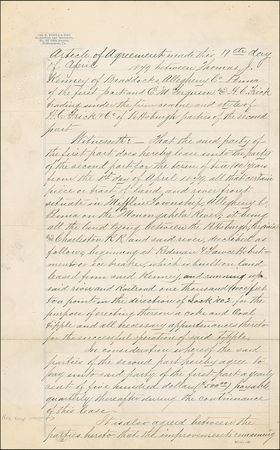 Article of Agreement made this 17th day
of April 1879 between Thomas J.
Kenney of Braddocks, Allegheny Co Penna
of the first part and E. M. Ferguson & H. C. Frick
trading under the firm name and style of
H. C. Frick & Co of Pittsburgh parties of the second
part
Witnesseth — That the said party of
the first part does hereby lease unto the party
of the second part for the term of five years
from the 1st day of April 1879 all that certain
piece or tract of land, and river front
situate in Mifflin Township, Allegheny Co
Penna on the Monongahela River, it being
all the land lying between the Pittsburgh, Virginia
& Charleston R.R. and said river, described as
follows, beginning at Redman & abut-
ment or ice breaker, which is built on land
leased from said Kenney, and running up
said river and Railroad one thousand (1000) feet
to a point in the direction of Lock No 2, for the
purpose of erecting thereon a coke and Coal
Tipple and all necessary appurtenances thereto
for the successful operation of said Tipple.
In consideration whereof the said
parties of the second part hereby agree to
pay unto said party of the first part a yearly
rent of five hundred dollars ($500.00) payable
quarterly thereafter during the continuance
of this lease.
It is also agreed between the
parties hereto that the improvements remaining